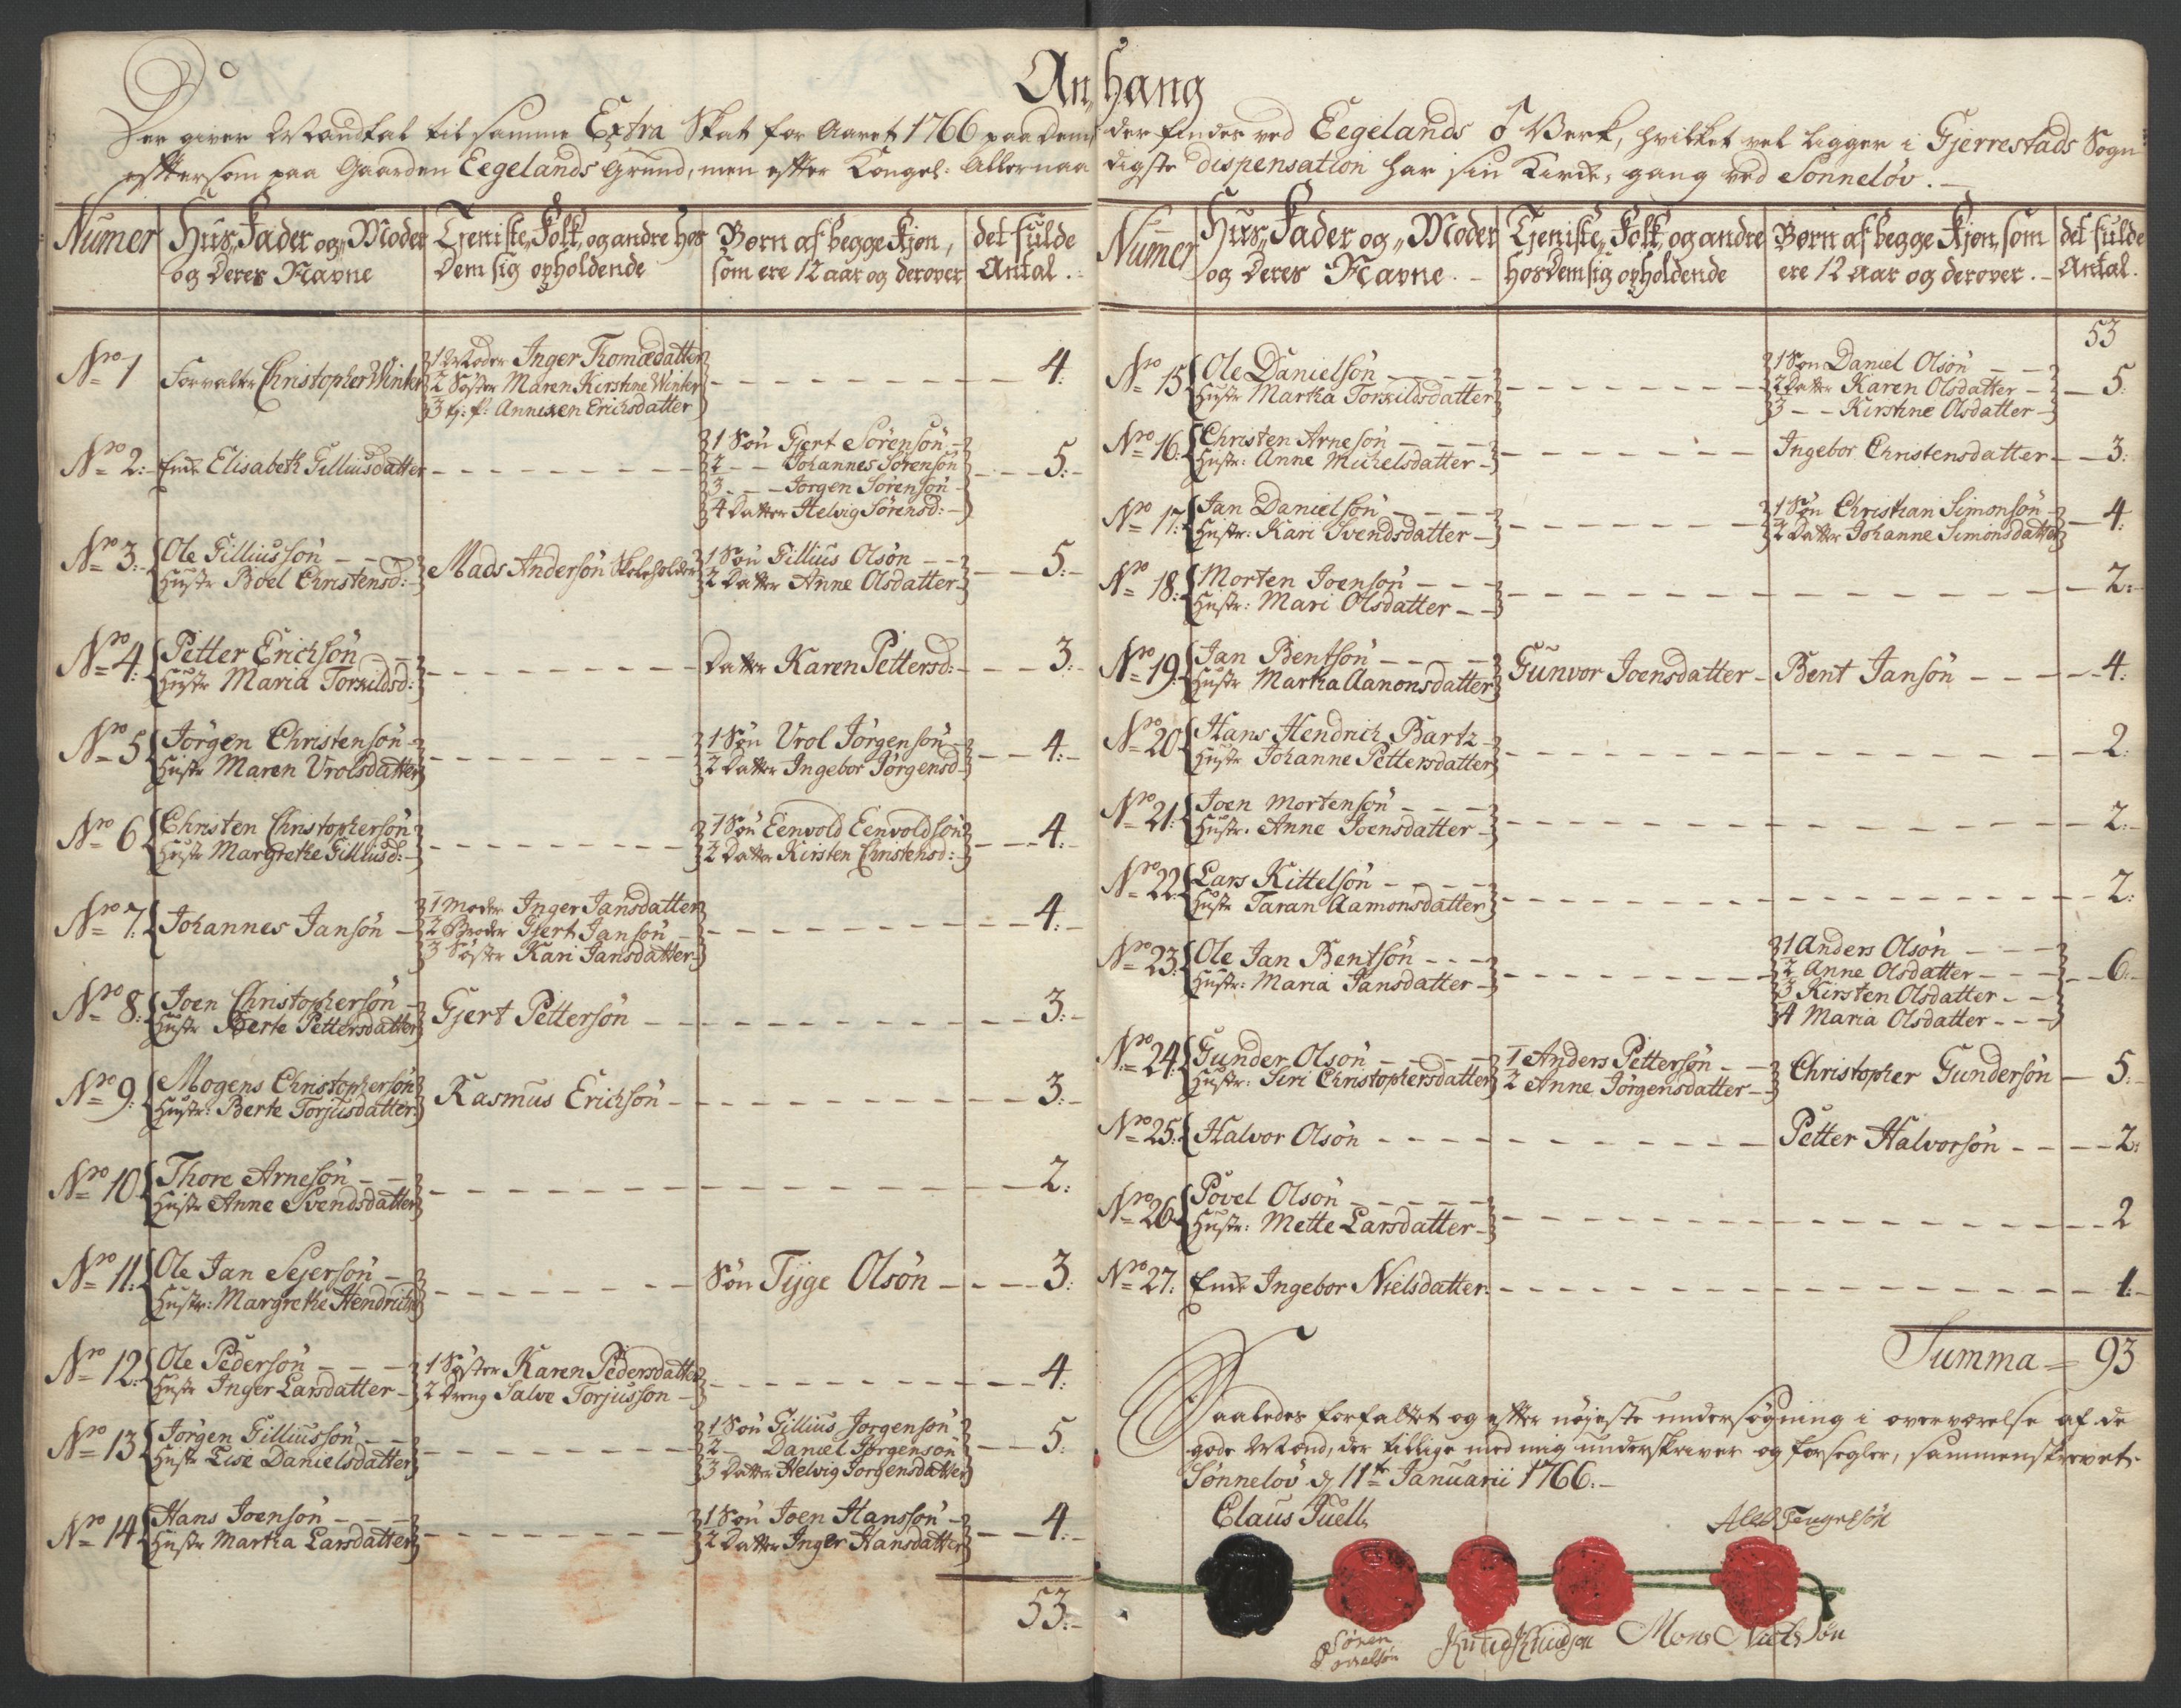 Anhang
Der giver Mandtal til samme Extra Skat for Aaret 1766 paa dem der findes ved Eegelands ♂ Verk, hvilket vel ligger i Gjerrestads Sogn
eftersom paa Gaarden Eegelands Grund, men efter Kongel: Allernaadigste dispensation har sin Kirke-gang ved Sönneløv.
Numer Huus-Fader og-Moder Tjeniste-Folk, og andre hos Børn af begge Kjøn, det fulde
og deres Navne dem sig opholdende som ere 12 aar og derover Antal.
No 1 Forvalter Christopher Winter 1 Moder Inger Thomædatter 4.
2 Søster Maren Kirstine Winter
3 tj: p: Anniken Erichsdatter
No 2: Enke Elisabeth Gilliusdatter 1 Søn Gjert Sörensön 5:
2 - - Johannes Sörensön
3 - - Jörgen Sörensön
4 Datter Helvig Sörensd:
No 3: Ole Gilliussön Mads Andersön Skoleholder 1 Søn Gillius Olsön 5:
Hustr Boel Christensd: 2 Datter Anne Olsdatter
No 4: Petter Erichsön Datter Karen Pettersd: 3:
Hustr Maria Torkildsd:
No 5 Jörgen Christensön 1 Søn Vrol Jörgensön 4:
Hustr Maren Vrolsdatter 2 Datter Ingebor Jörgensd
No 6 Christen Christophersön 1 Søn Eenvold Eenvoldsön 4:
Hustr Margrethe Gilliusd: 2 Datter Kirsten Christensd:
No 7: Johannes Jansön 1 Moder Inger Jansdatter 4:
2 Broder Gjert Jansön
3 Søster Kari Jansdatter
No 8: Joen Christophersön Gjert Pettersön 3:
Hustr Berte Pettersdatter
No 9: Mogens Christophersön Rasmus Erichsön 3:
Hustr: Berte Torjusdatter
No 10 Thore Arnesön 2:
Hustr Anne Svendsdatter
No 11: Ole Jan Sejersön Søn Tÿge Olsön 3:
Hustr: Margrethe Hendrichsd
No 12: Ole Pedersön 1 Søster Karen Pedersdatter 4:
Hustr Inger Larsdatter 2 Dreng Salve Torjussön
No 13 Jörgen Gilliussön 1 Søn Gillius Jörgensön 5:
Hustr Lise Danielsdatter 2 - Daniel Jörgensön
3 Datter Helvig Jörgensdatter
No 14 Hans Joensön 1 Søn Joen Hanssön 4:
Hustr Martha Larsdatter 2 Datter Inger Hansdatter
53:
Numer Huus-Fader og-Moder Tjeniste-Folk, og andre Børn af begge Kjøn, som det fulde
og deres Navne. hos dem sig opholdende ere 12 aar og derover. Antal.
53
No 15 Ole Danielsön 1 Søn Daniel Olsön 5:
Hustr Martha Torkildsdatter 2 Datter Karen Olsdatter
3 - - Kirstine Olsdatter
No 16: Christen Arnesön Ingebor Christensdatter 3:
Hustr: Anne Michelsdatter
No 17: Jan Danielsön 1 Søn Christian Simonsön 4:
Hustr: Kari Svendsdatter 2 Datter Johanne Simonsdatter
No 18: Morten Joensön 2:
Hustr: Mari Olsdatter
No 19: Jan Bentsön Gunvor Joensdatter Bent Jansön 4:
Hustr Martha Aanonsdatter
No 20 Hans Hendrich Bartz 2:
Hustr Johanne Pettersdatter
No 21: Joen Mortensön 2:
Hustr. Anne Joensdatter
No 22: Lars Kittelsön 2:
Hustr Taran Aamonsdatter
No 23: Ole Jan Bentsön 1 Anders Olsön 6:
Hustr: Maria Jansdatter 2 Anne Olsdatter
3 Kirsten Olsdatter
4 Maria Olsdatter
No 24: Gunder Olsön 1 Anders Pettersön Christopher Gundersön 5:
Hustr: Siri Christophersdatter 2 Anne Jörgensdatter
No 25: Halvor Olsön Petter Halvorsön 2:
No 26 Povel Olsön 2
Hustr: Mette Larsdatter
No 27: Enke Ingebor Nielsdatter 1:
Summa = 93
Saaledes forfattet og efter nøjeste undersøgning i overværelse af de
gode Mænd, der tillige med mig underskriver og forsegler, sammenskrevet.
Sønneløv d 11te Januarii 1766.
Claus Juell Tengelsön
Sören
Knud Knudsön Mons Nielsön